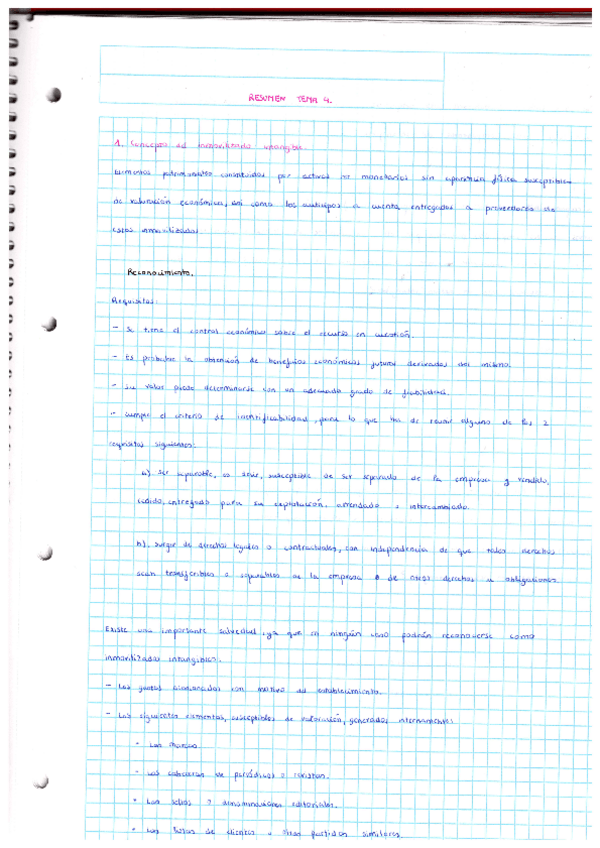 RESUMEN TEMA 4.
1. Concepto del inmovilizado intangible.
Elementos patrimoniales constituidos por activos no monetarios sin apariencia física susceptibles
de valoración económica, así como los anticipos a cuenta entregados a proveedores de
estos inmovilizados.
Reconocimiento.
Requisitos:
- Se tiene el control económico sobre el recurso en cuestión.
- Es probable la obtención de beneficios económicos futuros derivados del mismo.
- Su valor puede determinarse con un adecuado grado de fiabilidad.
- Cumpla el criterio de identificabilidad, para lo que ha de reunir alguno de los 2
requisitos siguientes:
a) Ser separable, es decir, susceptible de ser separado de la empresa y vendido,
cedido, entregado para su explotación, arrendado o intercambiado.
b). Surgir de derechos legales o contractuales, con independencia de que tales derechos
sean transferibles o separables de la empresa o de otros derechos u obligaciones.
Existe una importante salvedad, ya que en ningún caso podrán reconocerse como
inmovilizados intangibles:
- Los gastos ocasionados con motivo del establecimiento.
- Los siguientes elementos, susceptibles de valoración, generados internamente:
• Las marcas.
• Las cabeceras de periódicos o revistas.
• Los sellos o denominaciones editoriales.
• Las listas de clientes u otras partidas similares.